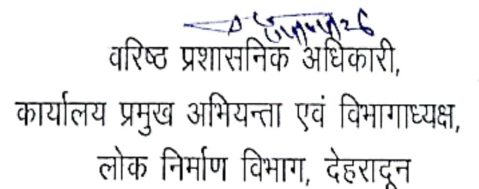 वरिष्ठ प्रशासनिक अधिकारी,
कार्यालय प्रमुख अभियन्ता एवं विभागाध्यक्ष,
लोक निर्माण विभाग, देहरादून